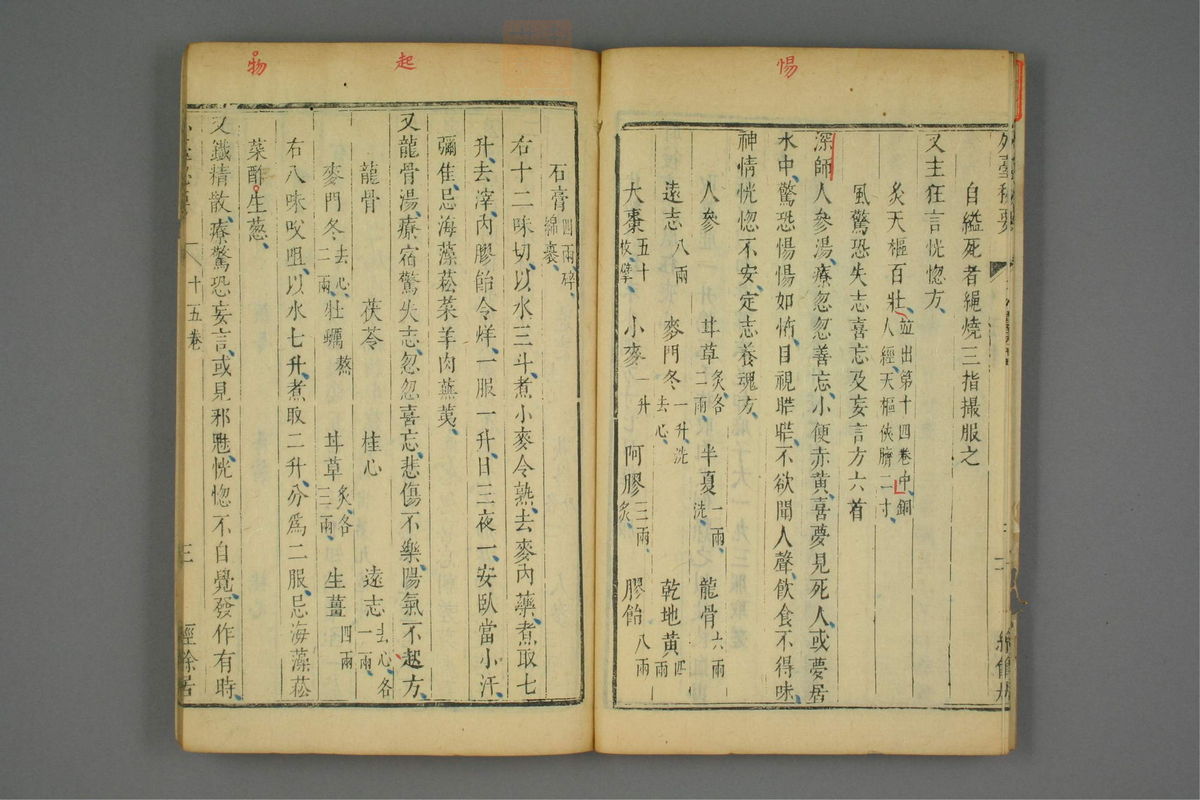 惕
外臺秘要
自縊死者繩燒三指撮服之
又主狂言恍惚方
灸天樞百壯並出第十四卷中銅人經天樞俠臍二寸
風驚恐失志喜忘及妄言方六首
深師人參湯療忽忽善忘小便赤黃喜夢見死人或夢居
水中驚恐惕惕如怖目視䀮䀮不欲聞人聲飲食不得味
神情恍惚不安定志養魂方
人參 甘草二兩炙各 半夏一兩洗 龍骨六兩
遠志八兩 麥門冬一升洗去心 乾地黃四兩
大棗五十枚擘 小麥一升 阿膠三兩炙 膠飴八兩
起
物
石膏四兩碎綿裹
右十二味切以水三斗煮小麥令熟去麥內藥煮取七
升去滓內膠飴令烊一服一升日三夜一安臥當小汗
彌佳忌海藻菘菜羊肉蕪荑
又龍骨湯療宿驚失志忽忽喜忘悲傷不樂陽氣不起方
龍骨 茯苓 桂心 遠志去心各一兩
麥門冬去心二兩 牡蠣熬 甘草炙各三兩 生薑四兩
右八味㕮咀以水七升煮取二升分為二服忌海藻菘
菜酢生蔥
又鐵精散療驚恐妄言或見邪魅恍惚不自覺發作有時
十五卷 三 經餘居